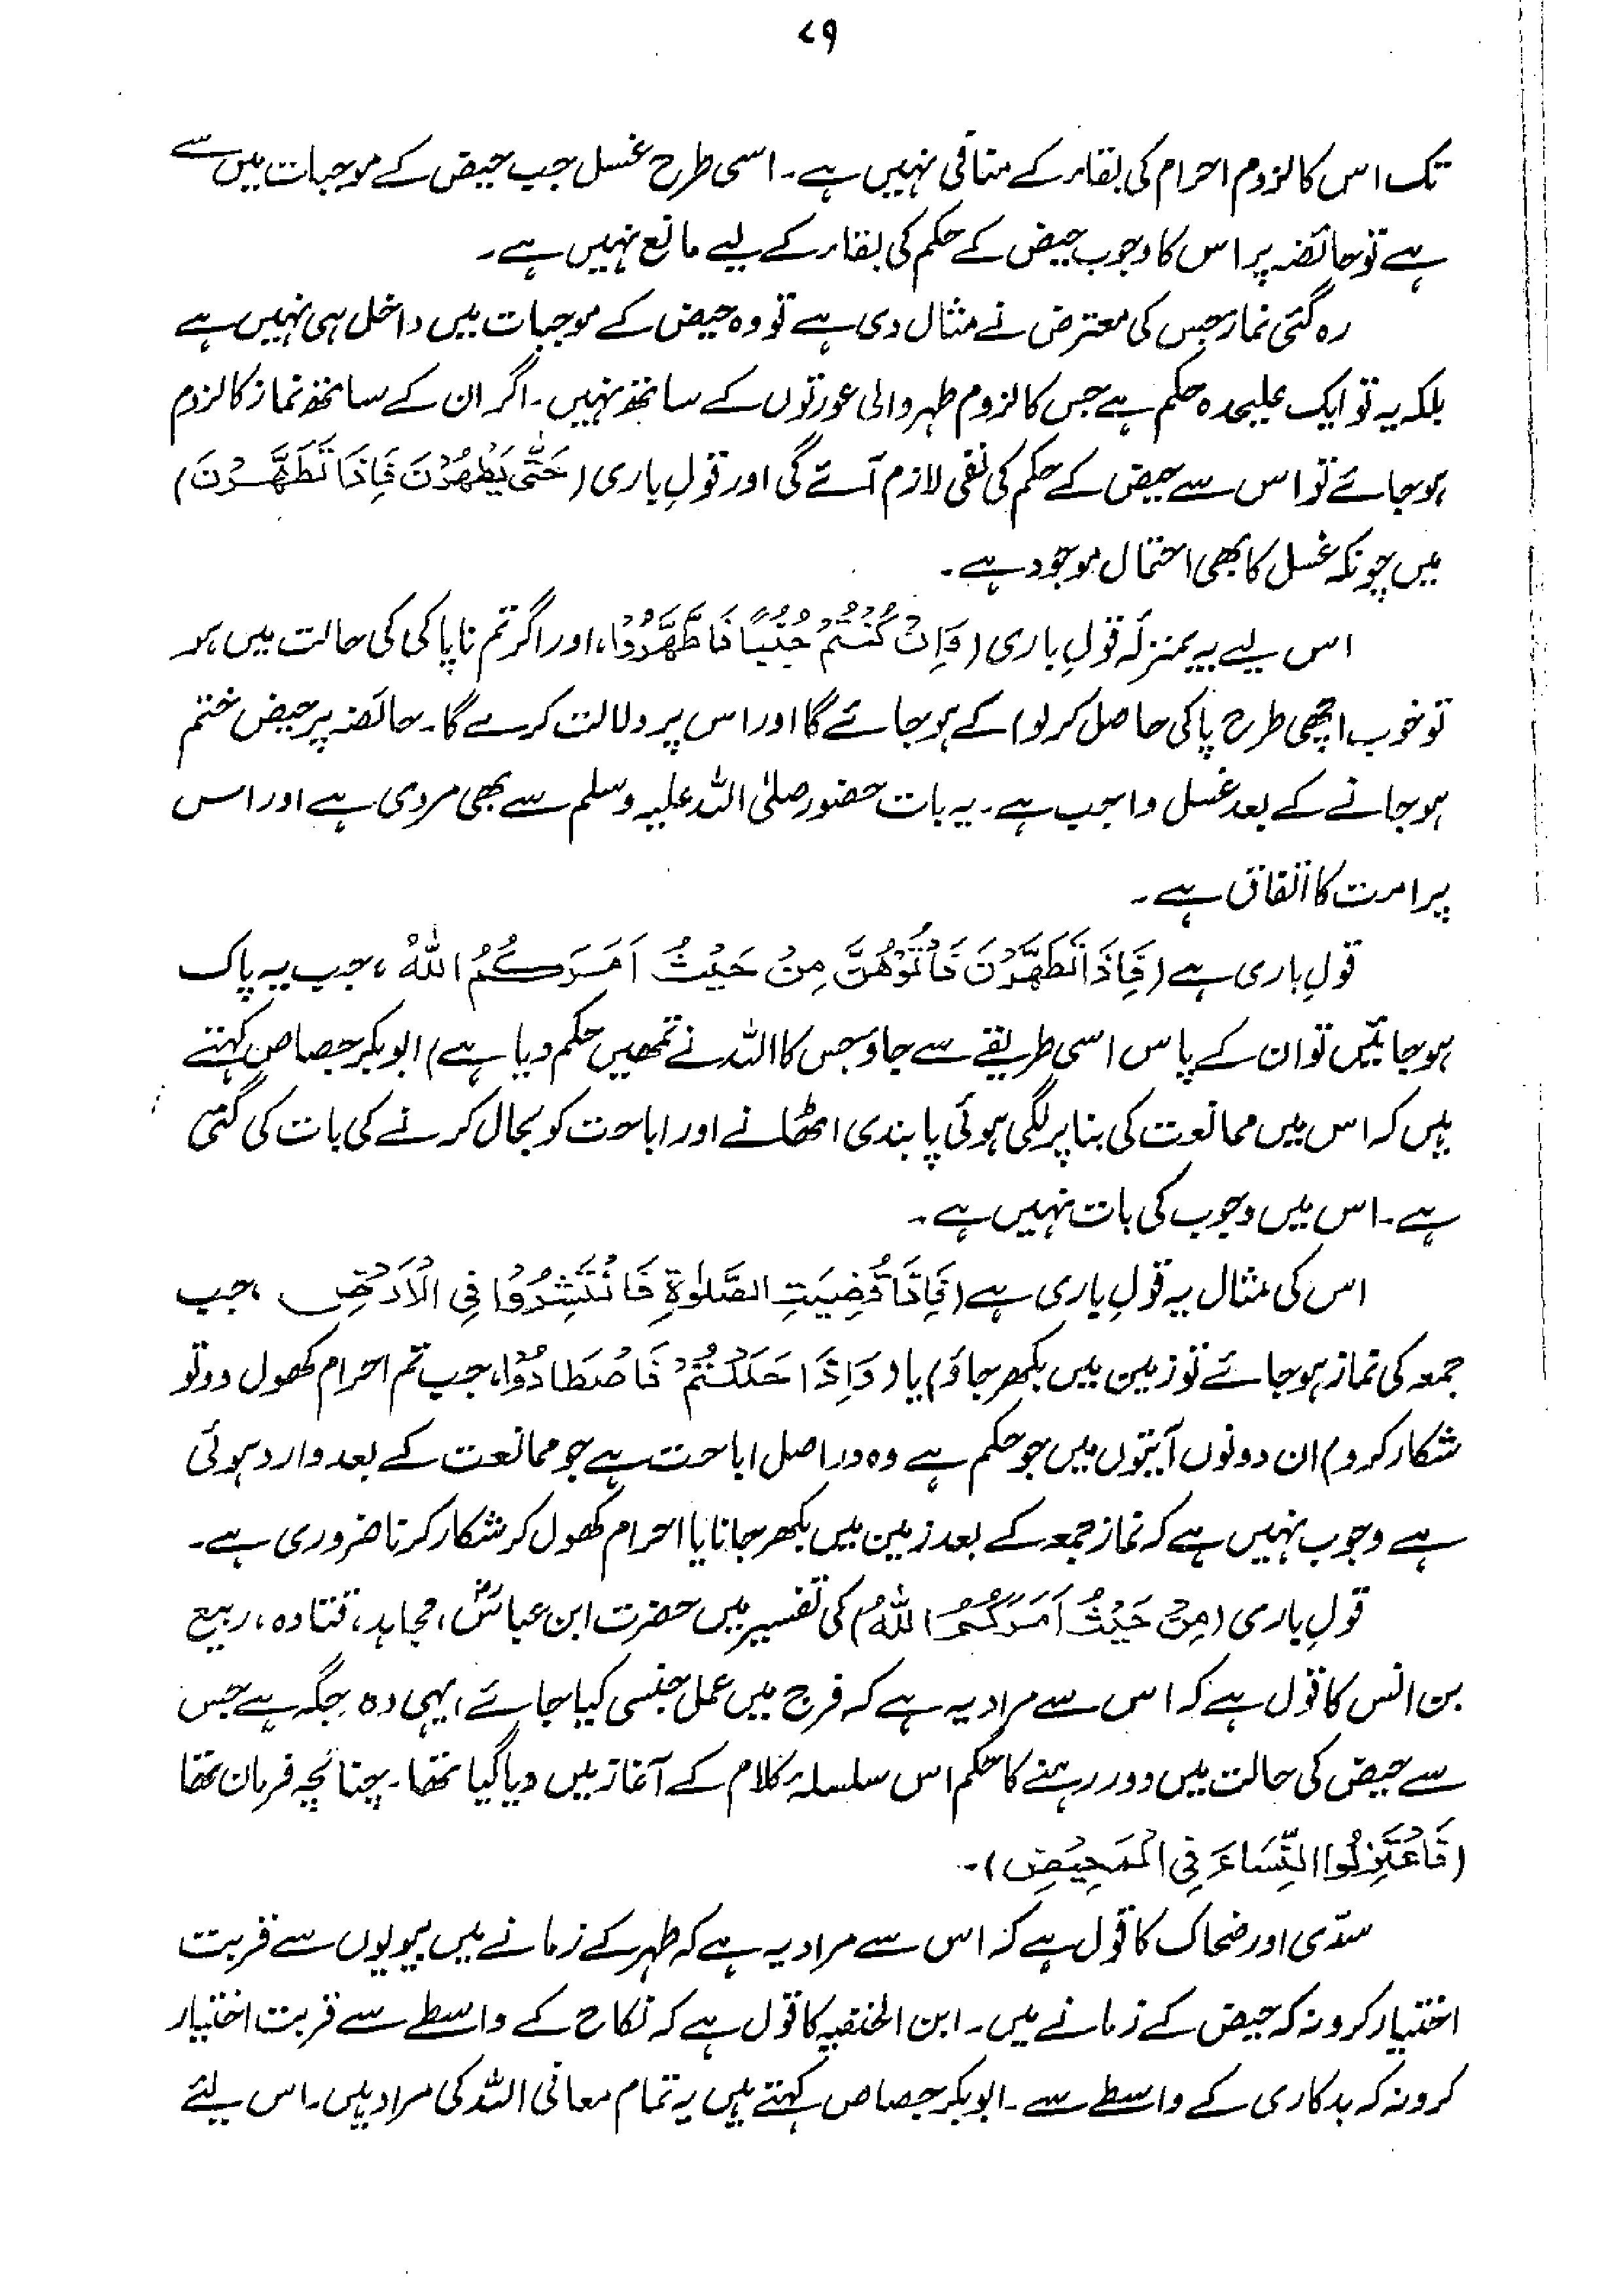 ۷۹
تک اس کا لزوم احرام کی بقاء کے منافی نہیں ہے۔ اسی طرح غسل جب حیض کے موجبات میں سے
ہے تو حائضہ پر اس کا وجوب حیض کے حکم کی بقاء کے لیے مانع نہیں ہے۔
رہ گئی نماز جس کی معترض نے مثال دی ہے تو وہ حیض کے موجبات میں داخل ہی نہیں ہے
بلکہ یہ تو ایک علیحدہ حکم ہے جس کا لزوم طہر والی عورتوں کے ساتھ نہیں۔ اگر ان کے ساتھ نماز کا لزوم
ہو جائے تو اس سے حیض کے حکم کی نفی لازم آئے گی اور قولِ باری (حَتّٰى يَطْهُرْنَ فَاِذَا تَطَهَّرْنَ)
میں چونکہ غسل کا بھی احتمال موجود ہے۔
اس لیے یہ بمنزلہ قولِ باری (وَاِنْ كُنْتُمْ جُنُبًا فَاطَّهَّرُوْا، اور اگر تم ناپاکی کی حالت میں ہو
تو خوب اچھی طرح پاکی حاصل کر لو) کے ہو جائے گا اور اس پر دلالت کرے گا۔ حائضہ پر حیض ختم
ہو جانے کے بعد غسل واجب ہے۔ یہ بات حضور صلی اللہ علیہ وسلم سے بھی مروی ہے اور اس
پر امت کا اتفاق ہے۔
قولِ باری ہے (فَاِذَا تَطَهَّرْنَ فَأْتُوْهُنَّ مِنْ حَيْثُ اَمَرَكُمُ اللّٰهُ، جب یہ پاک
ہو جائیں تو ان کے پاس اسی طریقے سے جاؤ جس کا اللہ نے تمھیں حکم دیا ہے) ابوبکر جصاص کہتے
ہیں کہ اس میں ممانعت کی بنا پر لگی ہوئی پابندی اٹھانے اور اباحت کو بحال کرنے کی بات کی گئی
ہے۔ اس میں وجوب کی بات نہیں ہے۔
اس کی مثال یہ قولِ باری ہے (فَاِذَا قُضِيَتِ الصَّلٰوةِ فَانْتَشِرُوْا فِى الْاَرْضِ، جب
جمعہ کی نماز ہو جائے تو زمین میں بکھر جاؤ) یا (وَاِذَا حَلَلْتُمْ فَاصْطَادُوْا، جب تم احرام کھول دو تو
شکار کرو) ان دونوں آیتوں میں جو حکم ہے وہ دراصل اباحت ہے جو ممانعت کے بعد وارد ہوئی
ہے وجوب نہیں ہے کہ نماز جمعہ کے بعد زمین میں بکھر جانا یا احرام کھول کر شکار کرنا ضروری ہے۔
قولِ باری (مِنْ حَيْثُ اَمَرَكُمُ اللّٰهُ) کی تفسیر میں حضرت ابن عباسؓ، مجاہد، قتادہ، ربیع
بن انس کا قول ہے کہ اس سے مراد یہ ہے کہ فرج میں عمل جنسی کیا جائے، یہی وہ جگہ ہے جس
سے حیض کی حالت میں دور رہنے کا حکم اس سلسلۂ کلام کے آغاز میں دیا گیا تھا۔ چنانچہ فرمان تھا
(فَاعْتَزِلُوا النِّسَاءَ فِى الْمَحِيْضِ)۔
سدّی اور ضحاک کا قول ہے کہ اس سے مراد یہ ہے کہ طہر کے زمانے میں بیویوں سے قربت
اختیار کرو نہ کہ حیض کے زمانے میں۔ ابن الحنفیہ کا قول ہے کہ نکاح کے واسطے سے قربت اختیار
کرو نہ کہ بدکاری کے واسطے سے۔ ابوبکر جصاص کہتے ہیں یہ تمام معانی اللہ کی مراد ہیں۔ اس لیئے